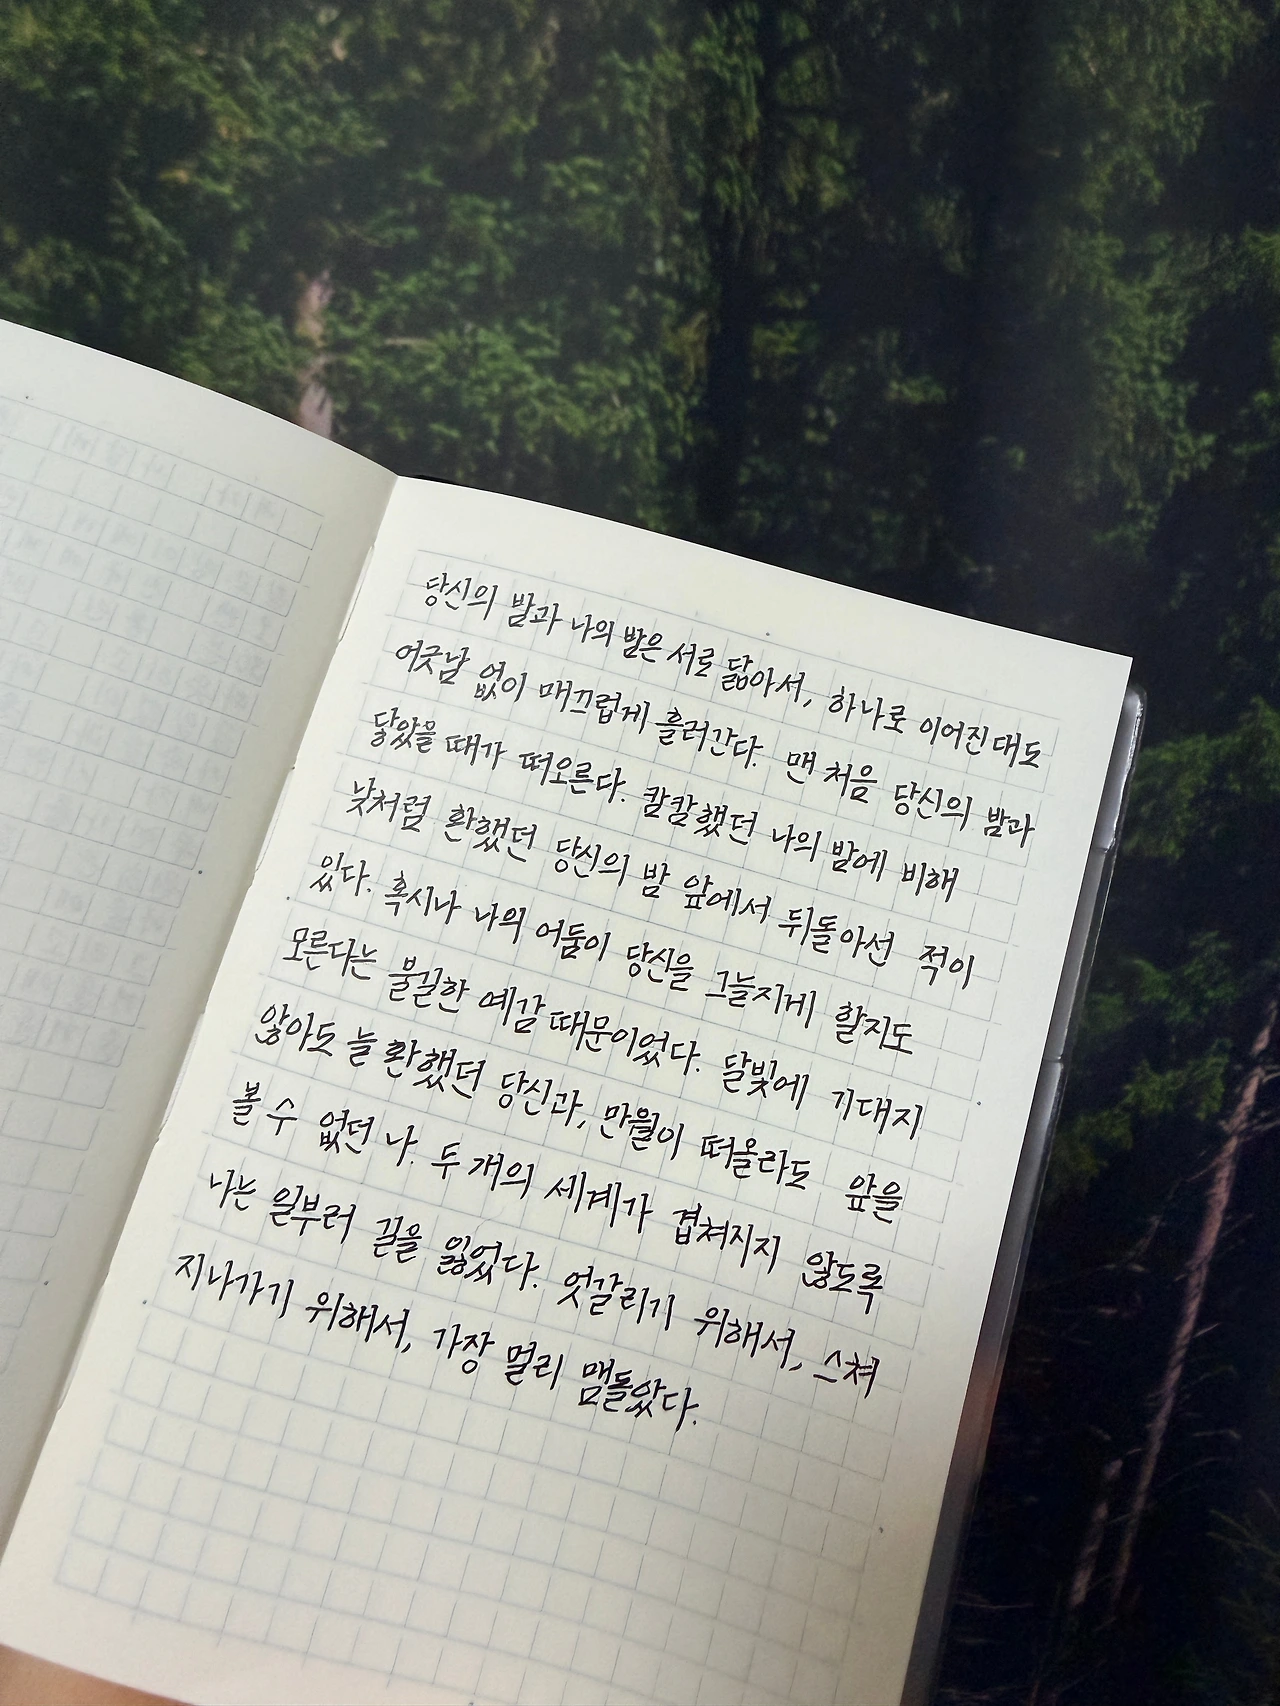 당신의 밤과 나의 밤은 서로 닮아서, 하나로 이어진대도
어긋남 없이 매끄럽게 흘러간다. 맨 처음 당신의 밤과
닿았을 때가 떠오른다. 캄캄했던 나의 밤에 비해
낮처럼 환했던 당신의 밤 앞에서 뒤돌아선 적이
있다. 혹시나 나의 어둠이 당신을 그늘지게 할지도
모른다는 불길한 예감 때문이었다. 달빛에 기대지
않아도 늘 환했던 당신과, 만월이 떠올라도 앞을
볼 수 없던 나. 두 개의 세계가 겹쳐지지 않도록
나는 일부러 길을 잃었다. 엇갈리기 위해서, 스쳐
지나가기 위해서, 가장 멀리 맴돌았다.